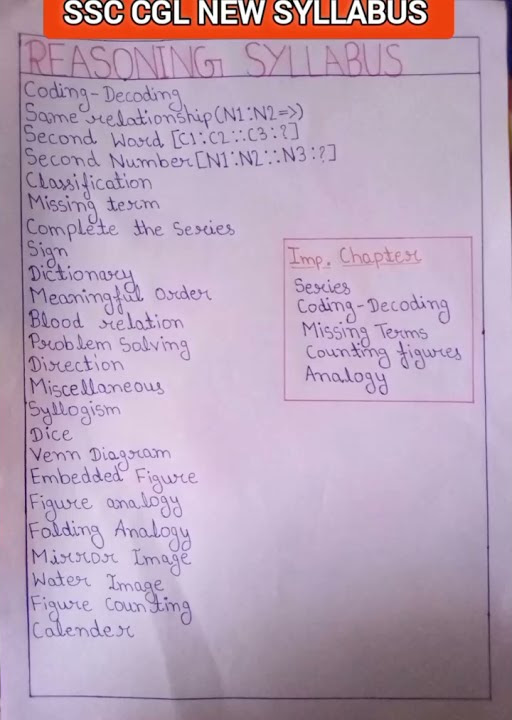 SSC CGL NEW SYLLABUS
REASONING SYLLABUS
Coding-Decoding
Same relationship(N1:N2=>)
Second Word [C1:C2::C3:?]
Second Number[N1:N2::N3:?]
Classification
Missing term
Complete the Series
Sign
Dictionary
Meaningful Order
Blood relation
Problem Solving
Direction
Miscellaneous
Syllogism
Dice
Venn Diagram
Embedded Figure
Figure analogy
Folding Analogy
Mirror Image
Water Image
Figure Counting
Calender
Imp. Chapter
Series
Coding-Decoding
Missing Terms
Counting figures
Analogy